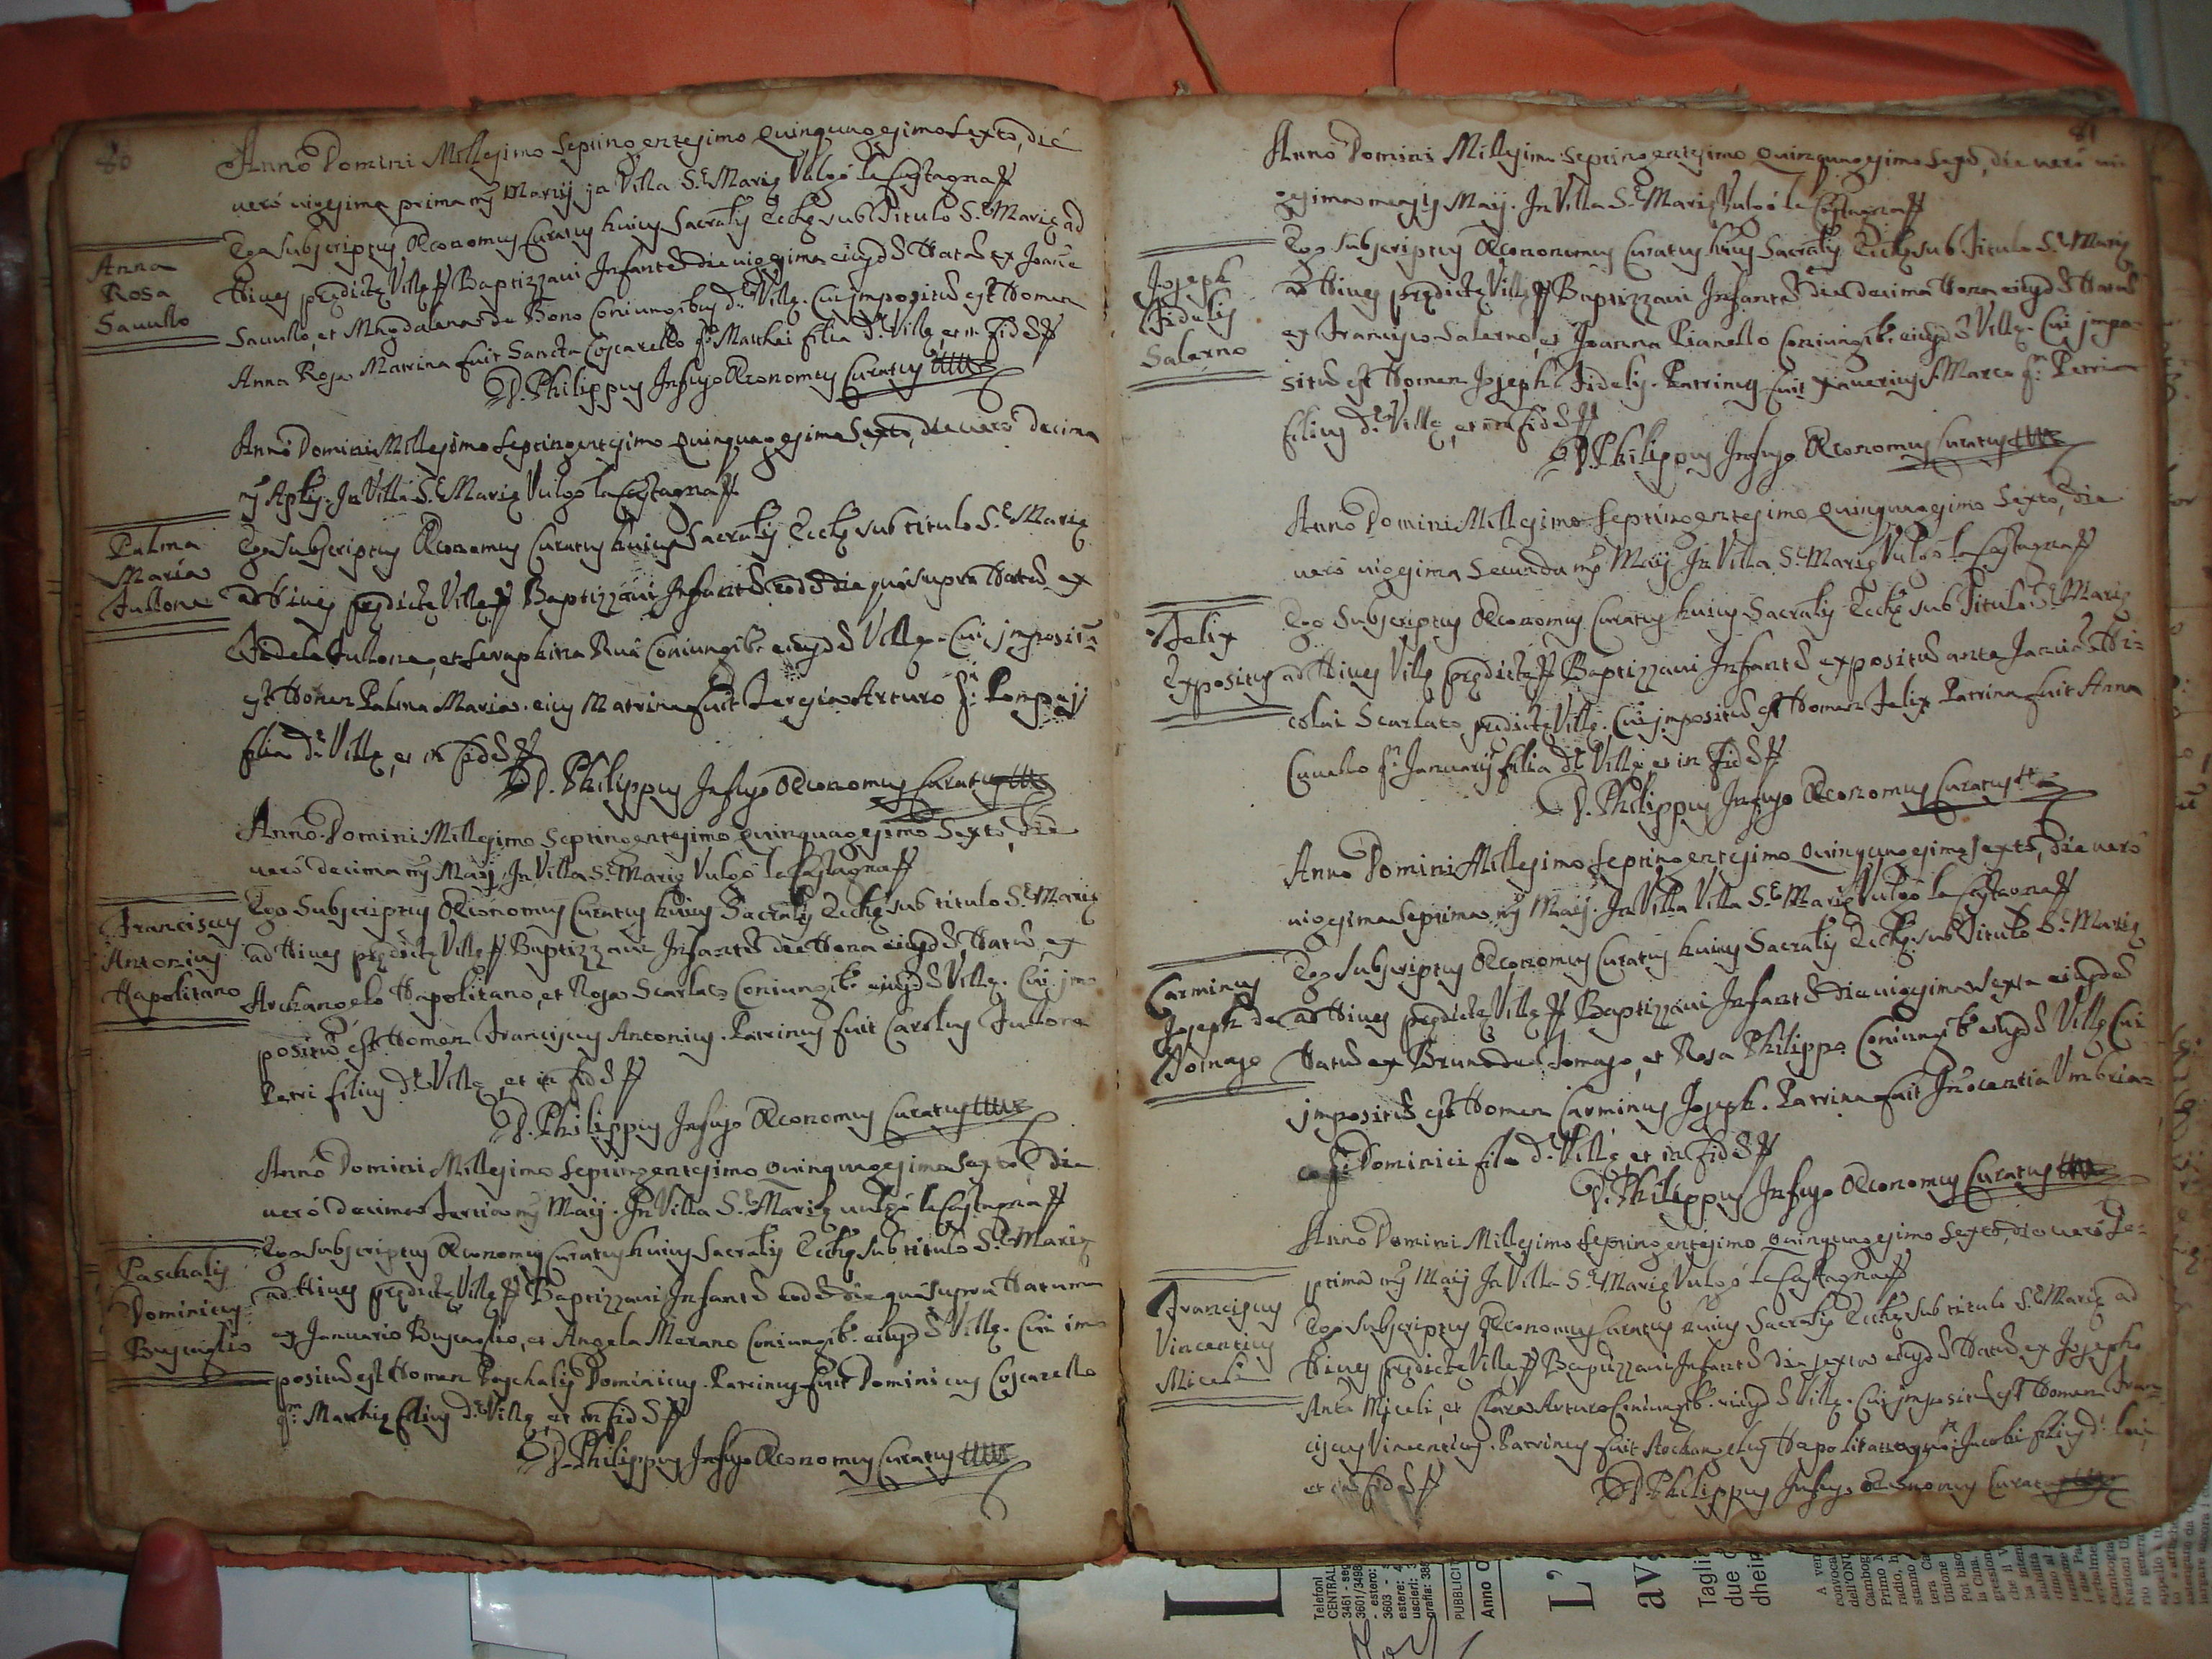 80
Anno Domini Millesimo Septingentesimo Quinquagesimo Sexto, die
vero uigesima prima ms Martij in Villa S.e Marię Vulgo la Castagna
Anna
Rosa
Sauullo
Ego subscriptus Œconomus Curatus huius Sacralis Eccłę sub Titulo S.e Marię ad
Niues prędictę Villę Baptizzaui Infante die uigesima eiusd Natu ex Joane
Sauullo, et Magdalena de Bono Coniungibus d.e Villę. Cui impositu est Nomen
Anna Rosa Matrina fuit Sancta Coscarello q.m Matthei filia d.e Villę, et in fid
D. Philippus Infuso Œconomus Curatus
Anno Domini Millesimo Septingentesimo Quinquagesimo Sexto, die uero decima
ms Aplis. In Villa S.e Marię Vulgo la Castagna
Palma
Maria
Fullone
Ego Subscriptus Œconomus Curatus huius Sacralis Eccłę sub titulo S.e Marię
ad Niues prędictę Villę Baptizzaui Infante eod die quo supra Natu ex
Fidele Fullone, et Seraphina Rua Coniungib. eiusd Villę. Cui impositu
est Nomen Palma Maria. eius Matrina fuit Sergia Arturo q.m Pompej
filia d.e Villę, et in fid
D. Philippus Infuso Œconomus Curatus
Anno Domini Millesimo Septingentesimo Quinquagesimo Sexto, die
uero decima ms Maij, In Villa S.e Marię Vulgo la Castagna
Franciscus
Antonius
Napolitano
Ego Subscriptus Œconomus Curatus huius Sacralis Eccłę sub titulo S.e Marię
ad Niues prędictę Villę Baptizzaui Infante die Nona eiusd Natu ex
Archangelo Napolitano, et Rosa Scarlato Coniungib. eiusd Villę. Cui im
positu est Nomen Franciscus Antonius. Patrinus fuit Carolus Fullone
Petri filius d.e Villę, et in fid
D. Philippus Infuso Œconomus Curatus
Anno Domini Millesimo Septingentesimo Quinquagesimo Sexto die
uero decima tertia ms Maij. In Villa S.e Marię uulgo la Castagna
Paschalis
Dominicus
Buscaglio
Ego subscriptus Œconomus Curatus huius Sacralis Eccłę sub titulo S.e Marię
ad Niues prędictę Villę Baptizzaui Infante eod die quo supra Natum
ex Januario Buscaglio, et Angela Merano Coniungib. eiusd Villę. Cui im
positu est Nomen Paschalis Dominicus. Patrinus fuit Dominicus Coscarello
q.m Mathię filius d.e Villę, et in fid
D. Philippus Infuso Œconomus Curatus
81
Anno Domini Millesimo Septingentesimo Quinquagesimo Sexto, die uero ui
gesima mensis Maij. In Villa S.e Marię Vulgo la Castagna
Joseph
Fidelis
Salerno
Ego subscriptus Œconomus Curatus huius Sacralis Eccłę sub Titulo S.e Marię
ad Niues prędictę Villę Baptizzaui Infante die decima Nona eiusd Natu
ex Francisco Salerno, et Joanna Pianello Coniungib. eiusd Villę. Cui impo
situ est Nomen Joseph Fidelis. Patrinus fuit Xauerius S. Marco q.m Petri
filius d.e Villę, et in fid
D. Philippus Infuso Œconomus Curatus
Anno Domini Millesimo Septingentesimo Quinquagesimo Sexto, die
uero uigesima Secunda ms Maij In Villa S.e Marię Vulgo la Castagna
Felix
Expositus
Ego Subscriptus Œconomus Curatus huius Sacralis Eccłę sub Titulo S.e Marię
ad Niues Villę prędictę Baptizzaui Infante expositu ante Januā Ni=
colai Scarlato prędictę Villę. Cui impositu est Nomen Felix Patrina fuit Anna
q.m Januarij filia d.e Villę et in fid
D. Philippus Infuso Œconomus Curatus
Anno Domini Millesimo Septingentesimo Quinquagesimo sexto, die uero
uigesima Septima ms Maij. In Villa Villa S.e Marię Vulgo la Castagna
Carminus
Joseph de
Tomaso
Ego subscriptus Œconomus Curatus huius Sacralis Eccłę sub Titulo S.e Marię
ad Niues prędictę Villę Baptizzaui Infante die uigesima sexta eiusd
Natu ex Bruno de Tomaso, et Rosa Philippo Coniungib eiusd Villę Cui
impositu est Nomen Carminus Joseph. Patrina fuit Inocentia Umbria=
co q.m Dominici filia d.e Villę, et in fid
D. Philippus Infuso Œconomus Curatus
Anno Domini Millesimo Septingentesimo Quinquagesimo Sexto, die uero Se=
ptima ms Maij In Villa S.e Marię Vulgo la Castagna
Franciscus
Vincentius
Miceli
Ego subscriptus Œconomus Curatus huius Sacralis Eccłę sub titulo S.e Marię ad
Niues prędictę Villę Baptizzaui Infante die sexta eiusd Natu ex Josepho
Anto Miceli, et Clara Arturo Coniungib. eiusd Villę. Cui impositu est Nomen Fran=
ciscus Vincentius. Patrinus fuit Archangelus Napolitano q.m Jacobi filius d.
et in fid
D. Philippus Infuso Œconomus Curatus
Telefoni
CENTRAL
PUBBLICI
Anno
L'
av
Tagli
due
dhein